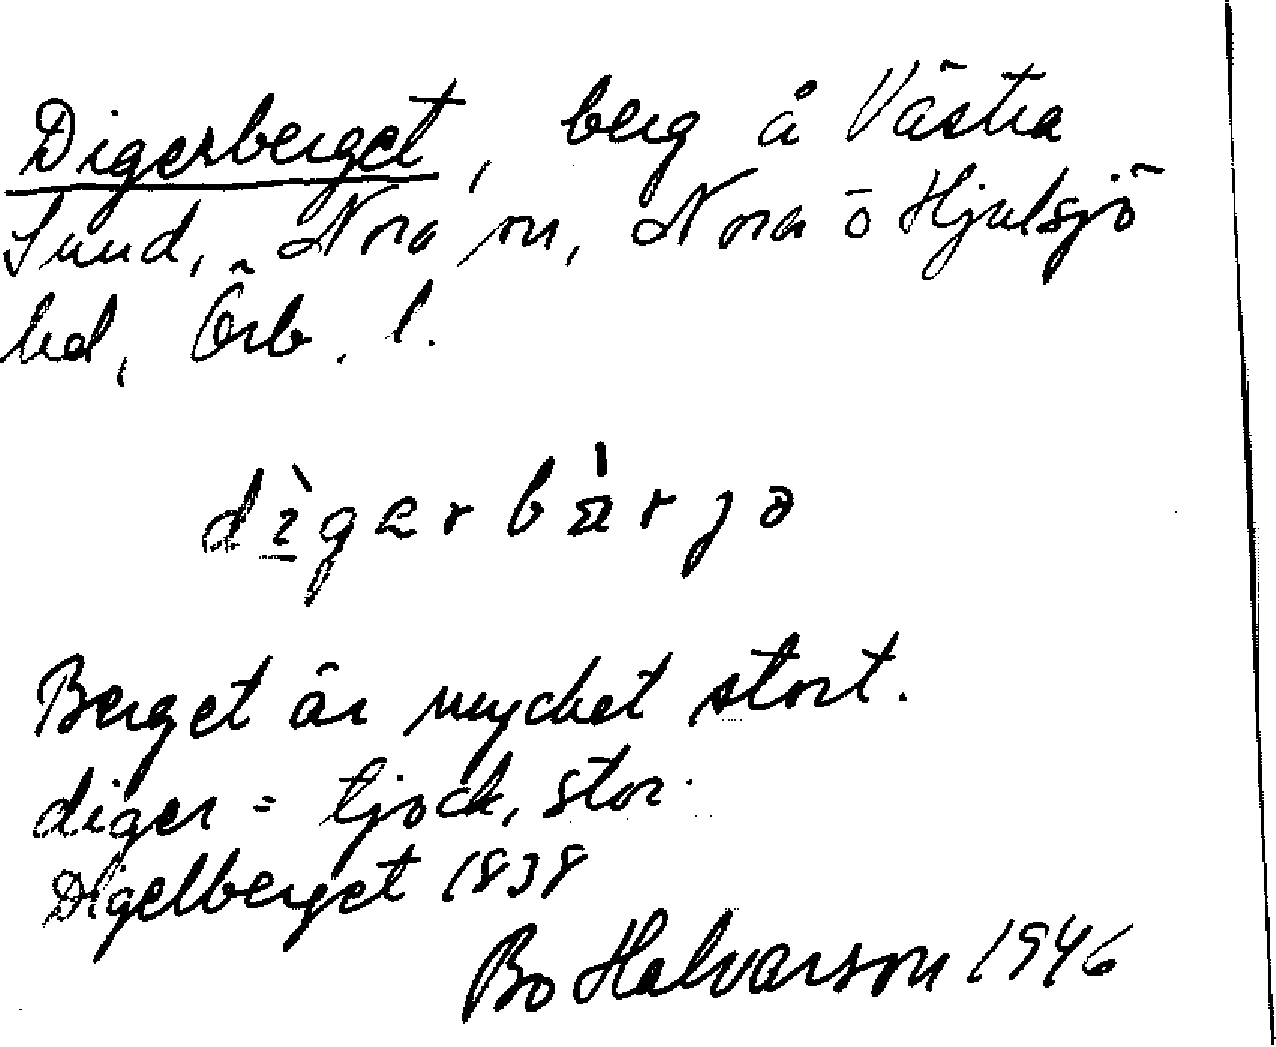 Digerberget, berg å Västra
Sund, Nora sn, Nora o Hjulsjö
bd, Örb. l.
dìgerbärjə
Berget är mycket stort.
diger = tjock, stor.
Digelberget 1838
Bo Halvarson 1946